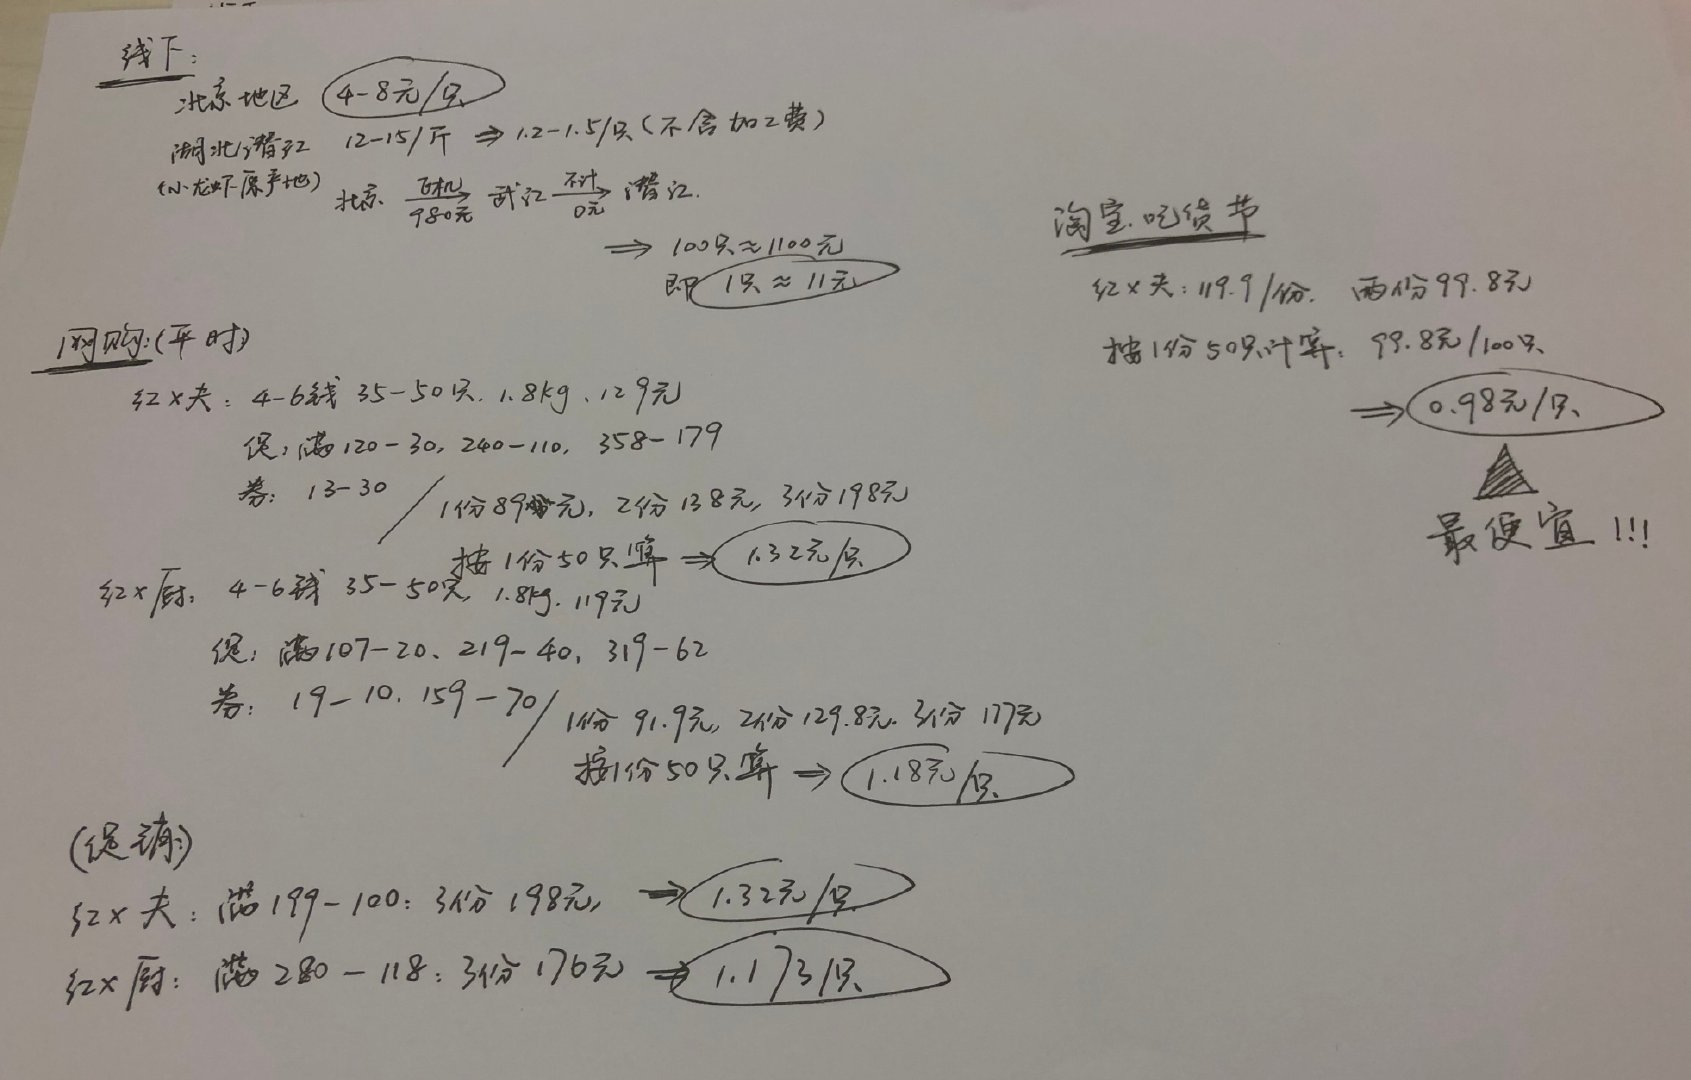 线下:
北京地区 4-8元/只
湖北潜江 12-15/斤 ⇒ 1.2-1.5/只(不含加工费)
(小龙虾原产地) 北京 飞机 980元 → 武汉 不计 0元 → 潜江.
⇒ 100只≈1100元
即 1只≈11元
网购:(平时)
红x夫: 4-6钱 35-50只. 1.8kg、129元
促: 满120-30, 240-110, 358-179
券: 13-30 / 1份89元, 2份138元, 3份198元
按1份50只算 ⇒ 1.32元/只
红x厨: 4-6钱 35-50只, 1.8kg. 119元
促: 满107-20、219-40, 319-62
券: 19-10. 159-70 / 1份 91.9元, 2份129.8元. 3份 177元
按1份50只算 ⇒ 1.18元/只
(促销)
红x夫: 满199-100: 3份198元, ⇒ 1.32元/只
红x厨: 满280-118: 3份176元 ⇒ 1.173/只
淘宝.吃货节
红x夫: 119.9/份. 两份99.8元
按1份50只计算: 99.8元/100只
⇒ 0.98元/只
最便宜!!!